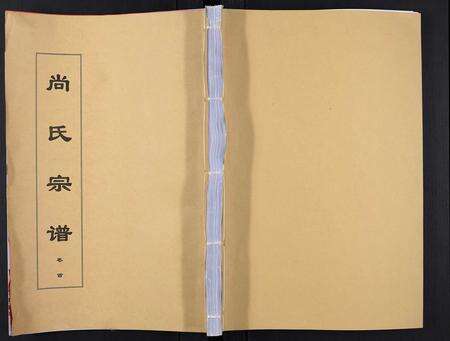 尚氏宗谱
卷首